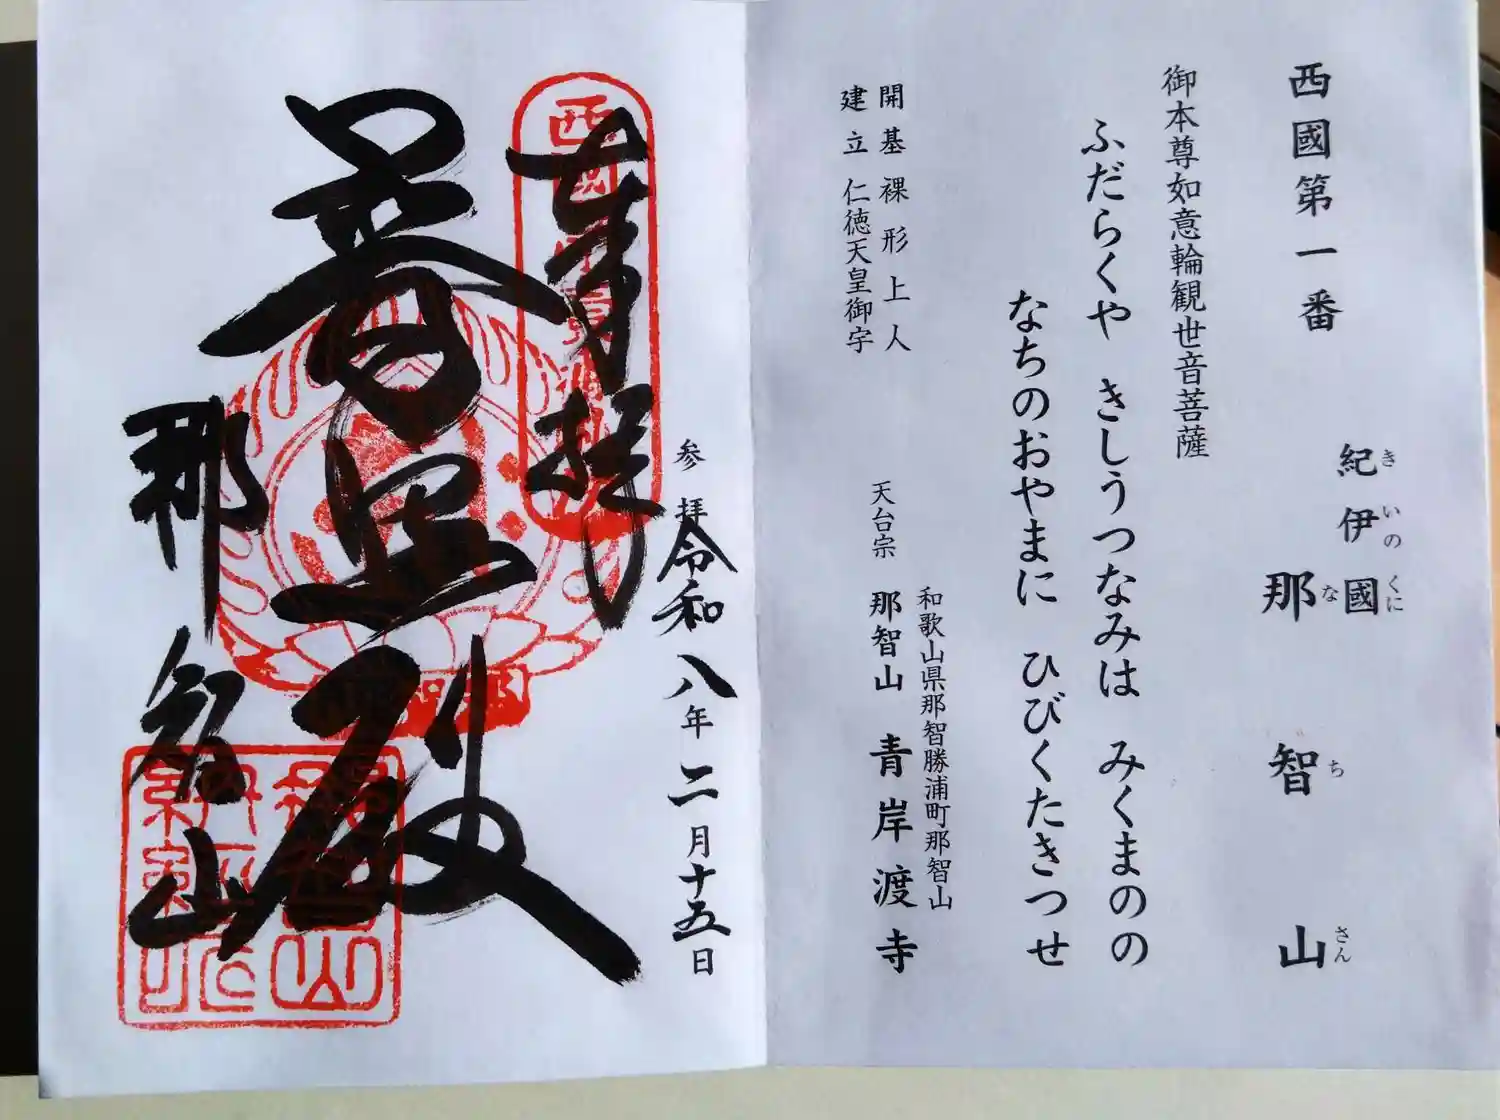 西國第一番
紀伊國
きいのくに
那智山
なちさん
御本尊如意輪観世音菩薩
ふだらくや きしうつなみは みくまのの
なちのおやまに ひびくたきつせ
開基裸形上人
建立仁徳天皇御宇
和歌山県那智勝浦町那智山
天台宗 那智山 青岸渡寺
参拝令和八年二月十五日
奉拝
普照殿
那智山